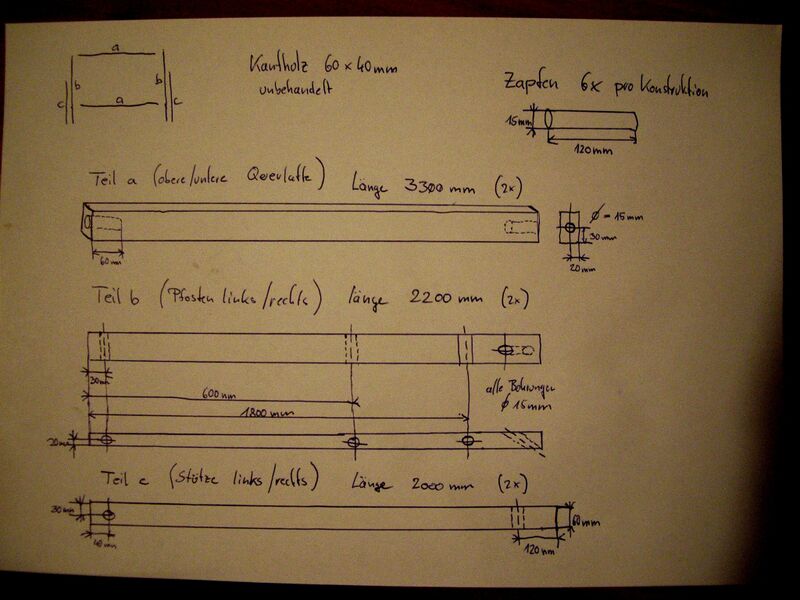 a
b
b
a
c
c
Kantholz 60 x 40mm
unbehandelt
Zapfen 6x pro Konstruktion
15mm
120mm
Teil a (obere/untere Querlatte) Länge 3300 mm (2x)
60 mm
Ø = 15 mm
30mm
20mm
Teil b (Pfosten links/rechts) länge 2200 mm (2x)
30mm
600mm
1800mm
alle Bohrungen
Ø 15mm
20mm
Teil c (Stütze links/rechts) Länge 2000 mm (2x)
30mm
40mm
60mm
120mm